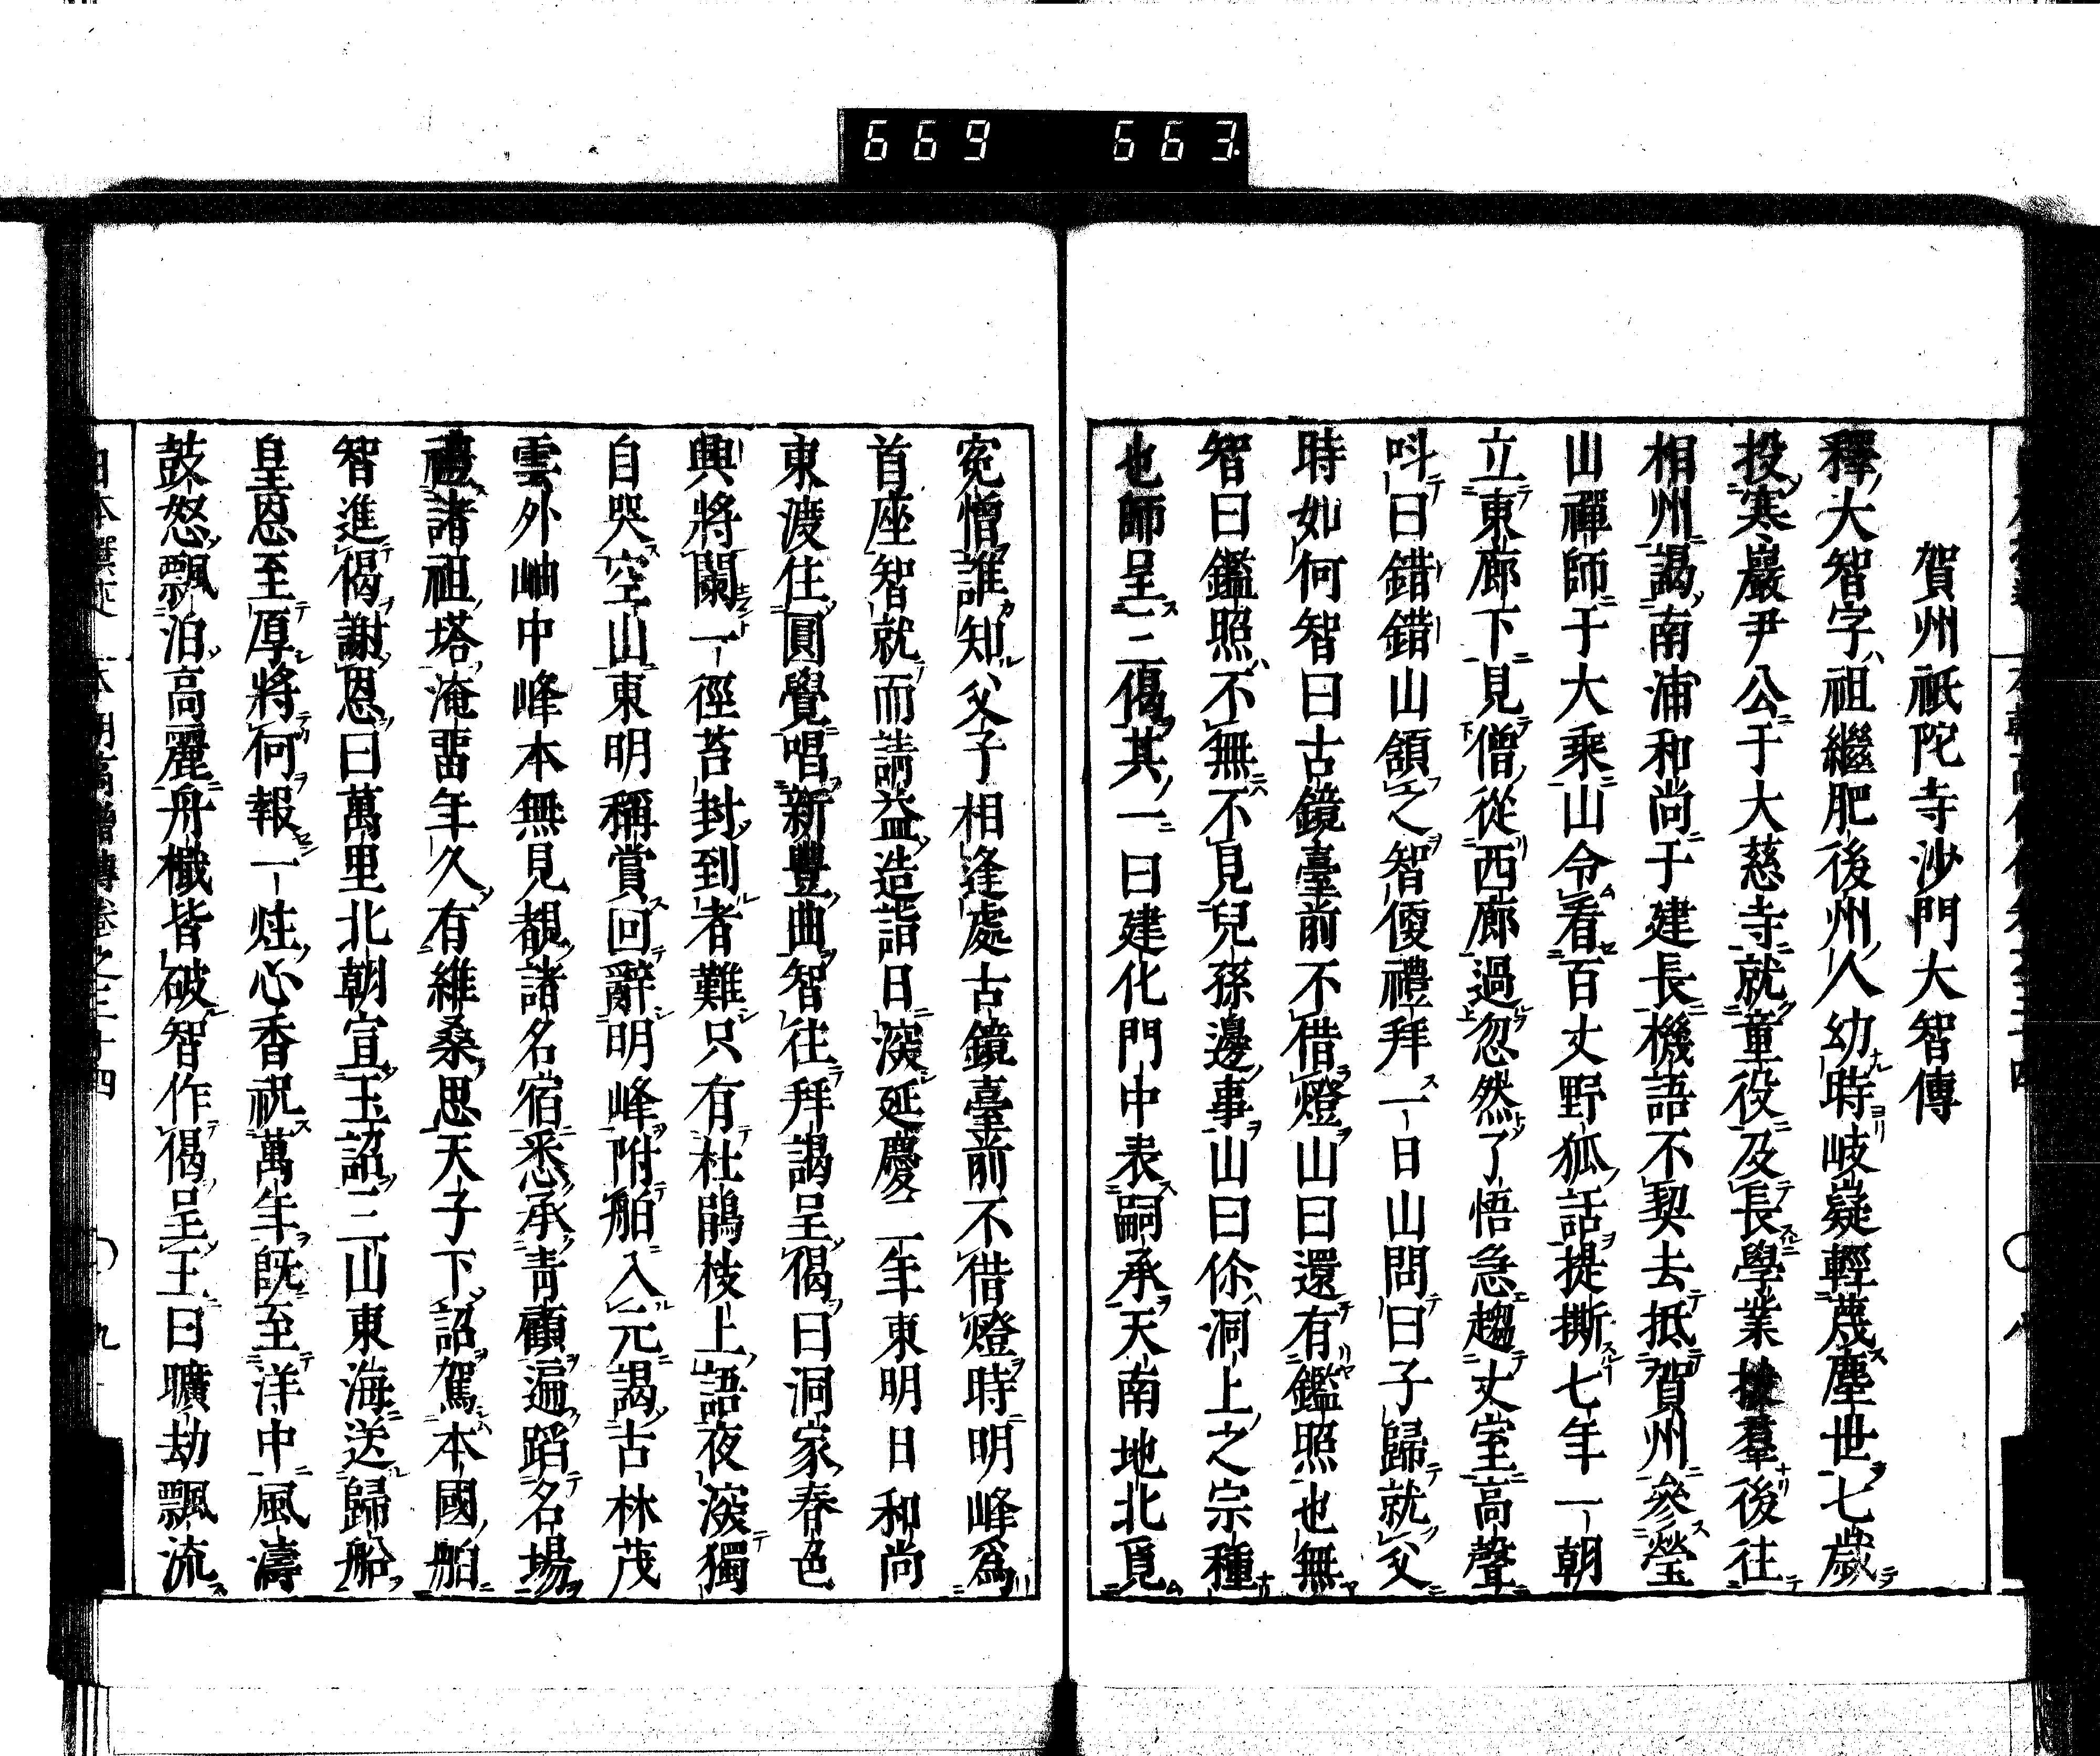 669 663
賀州祇陀寺沙門大智傳
釋大智字祖繼肥後州人幼時岐嶷輕蔑塵世七歲
投寒巖尹公于大慈寺就童役及長學業拔羣後往
相州謁南浦和尚于建長機語不契去抵賀州參瑩
山禪師于大乘山令看百丈野狐話提撕七年一朝
立東廊下見僧從西廊過忽然了悟急趨丈室高聲
呌曰錯錯山頷之智便禮拜一日山問曰子歸就父
時如何智曰古鏡臺前不借燈山曰還有鑑照也無
智曰鑑照不無不見兒孫邊事山曰你洞上之宗種
也師呈三偈其一曰建化門中表嗣承天南地北覓
冤憎誰知父子相逢處古鏡臺前不借燈時明峰爲
首座智就而請益造詣日湥延慶二年東明日和尚
東渡住圓覺唱新豐曲智往拜謁呈偈曰洞家春色
興將闌一徑苔封到者難只有杜鵑枝上語夜湥獨
自哭空山東明稱賞回辭明峰附舶入元謁古林茂
雲外岫中峰本無見覩諸名宿悉承靑顧遍蹈名場
禮諸祖塔淹畱年久有維桑思天子下詔駕本國舶
智進偈謝恩曰萬里北朝宣玉詔三山東海送歸船
皇恩至厚將何報一炷心香祝萬年旣至洋中風濤
鼓怒飄泊高麗舟檝皆破智作偈呈王曰曠劫飄流
日本 本朝高僧傳卷之二十四 〇九